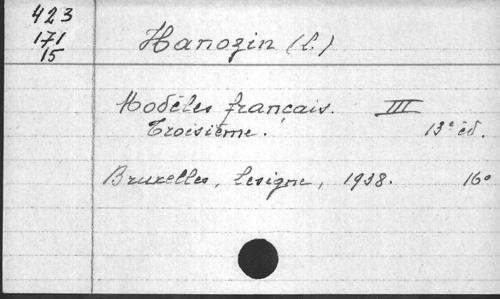 423
171
15
Hanozin (L.)
Modèles français. III
Troisième. 13e éd.
Bruxelles, Lesigne, 1938. 16o